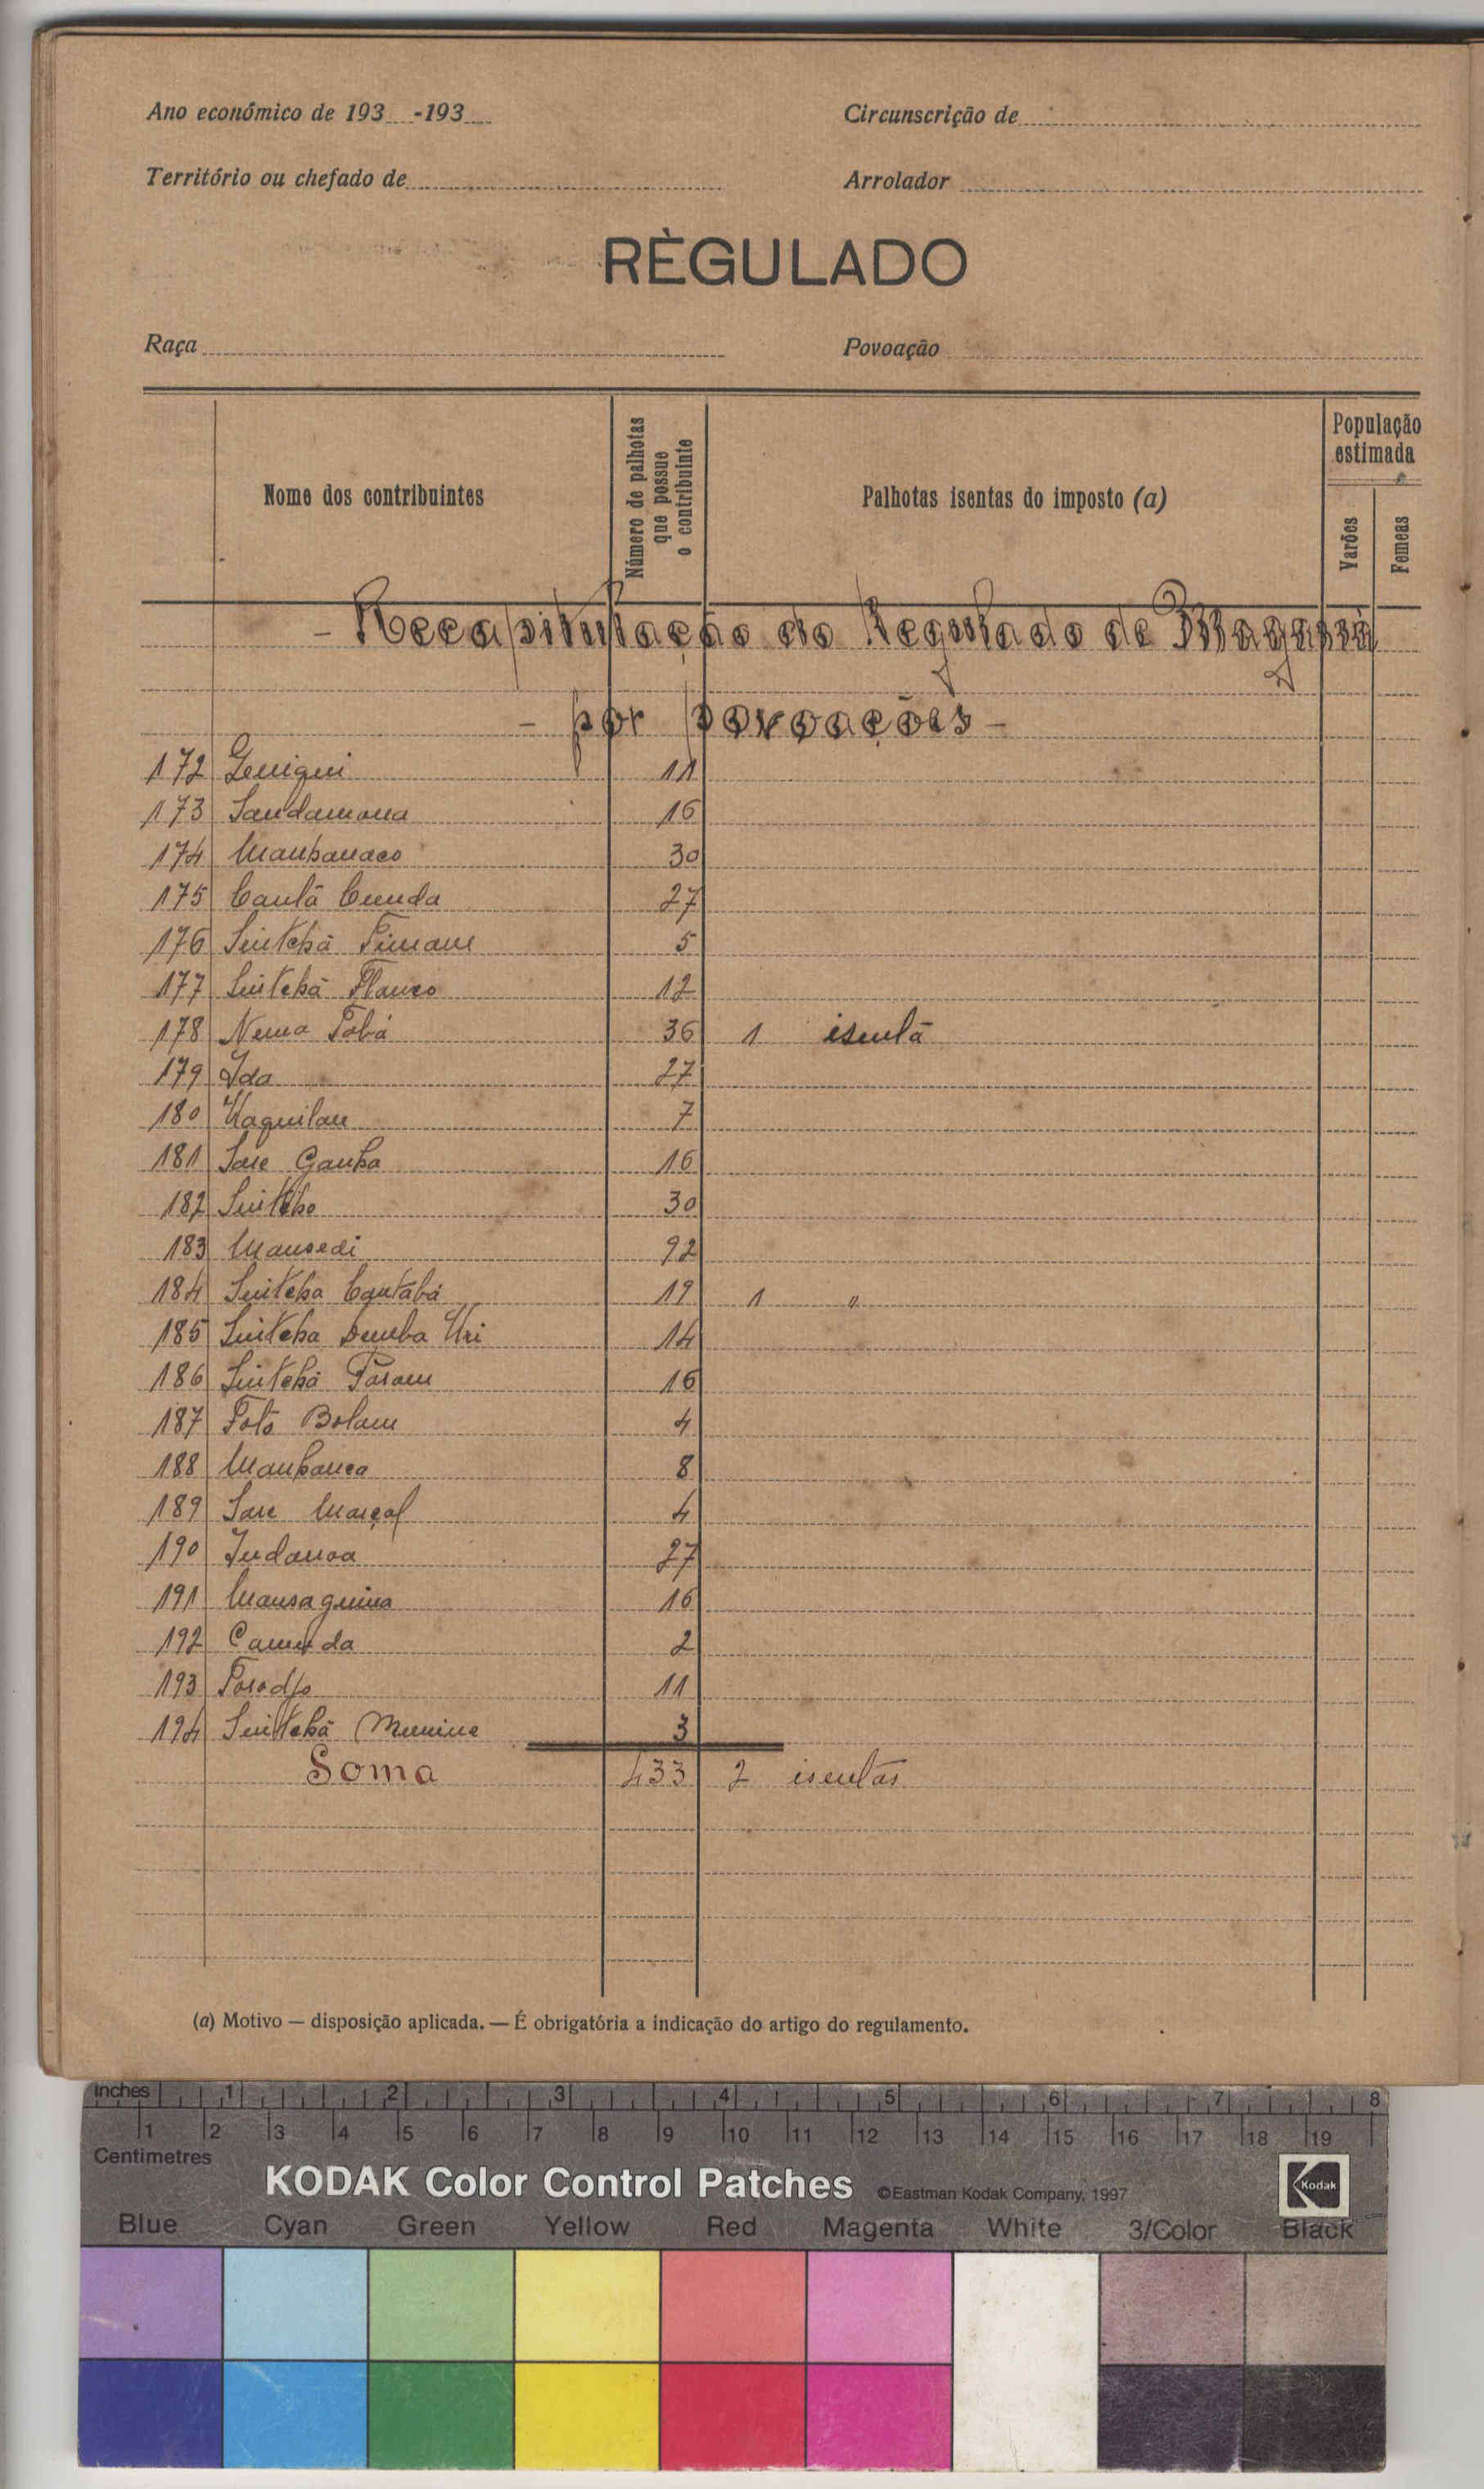 Ano económico de 193 -193
Circunscrição de
Território ou chefado de
Arrolador
RÈGULADO
Raça
Povoação
Nome dos contribuintes
Número de palhotas que possue o contribuinte
Palhotas isentas do imposto (a)
População estimada
Varões
Femeas
- Recapitulação do Regulado de
- por povoações -
172 Geniqui 11
173 Sandamona 16
174 30
175 Cantã Cunda 27
176 Sintchã 5
177 Sintchã 12
178 Nema Tabá 36 1 isenta
179 Ida 27
180 7
181 Sare Ganha 16
182 30
183 Mansedi 92
184 Sintcha Cantabá 19 1 "
185 Sintcha Demba Uri 14
186 Sintchã 16
187 Foto Bolam 4
188 8
189 Sare Marçal 4
190 27
191 Mansaguina 16
192 2
193 11
194 Sintchã 3
Soma 433 2 isentas
(a) Motivo — disposição aplicada. — É obrigatória a indicação do artigo do regulamento.
Inches 1 2 3 4 5 6 7 8
1 2 3 4 5 6 7 8 9 10 11 12 13 14 15 16 17 18 19
Centimetres
KODAK Color Control Patches ©Eastman Kodak Company, 1997 Kodak
Blue Cyan Green Yellow Red Magenta White 3/Color Black